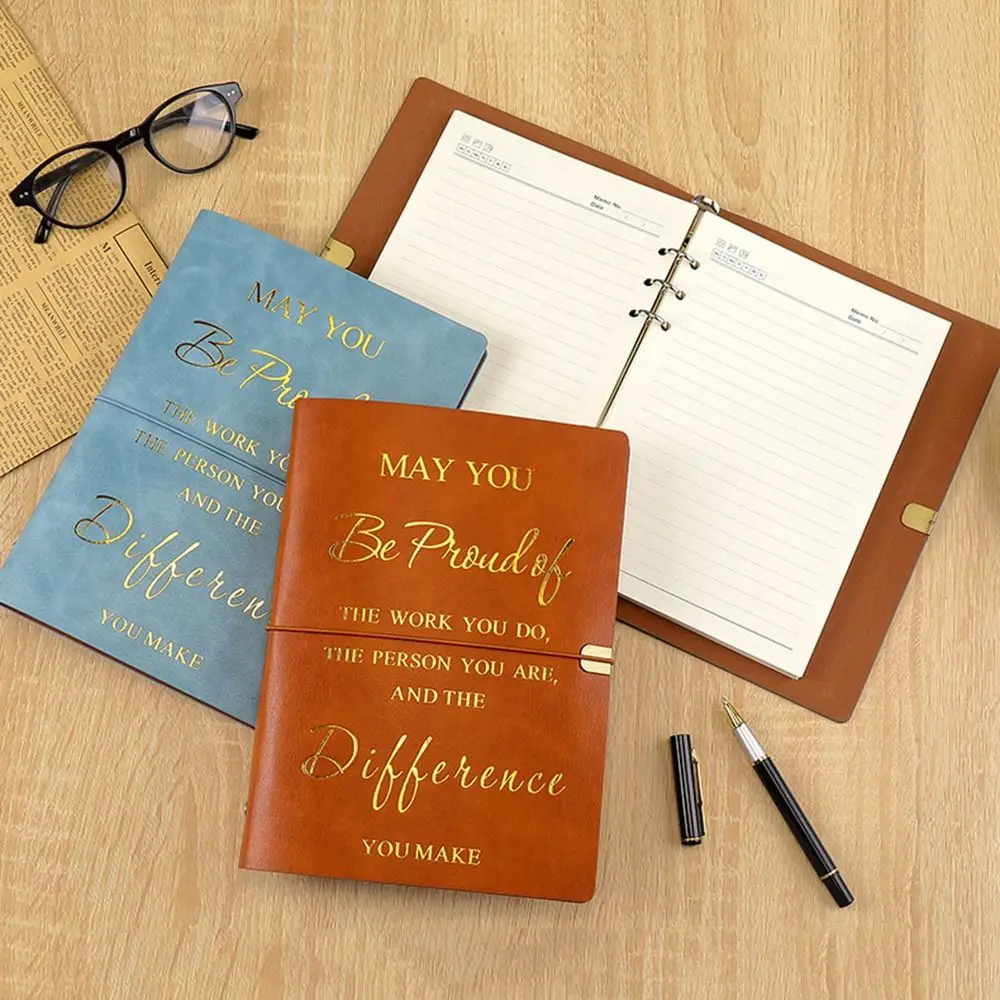 MAY YOU
Be Pro
THE WORK YO
THE PERSON YOU
AND THE
Differen
YOU MAKE
MAY YOU
Be Proud of
THE WORK YOU DO,
THE PERSON YOU ARE,
AND THE
Difference
YOU MAKE
Memo No.
Date / /
Memo No.
Date / /
MEANWHILE